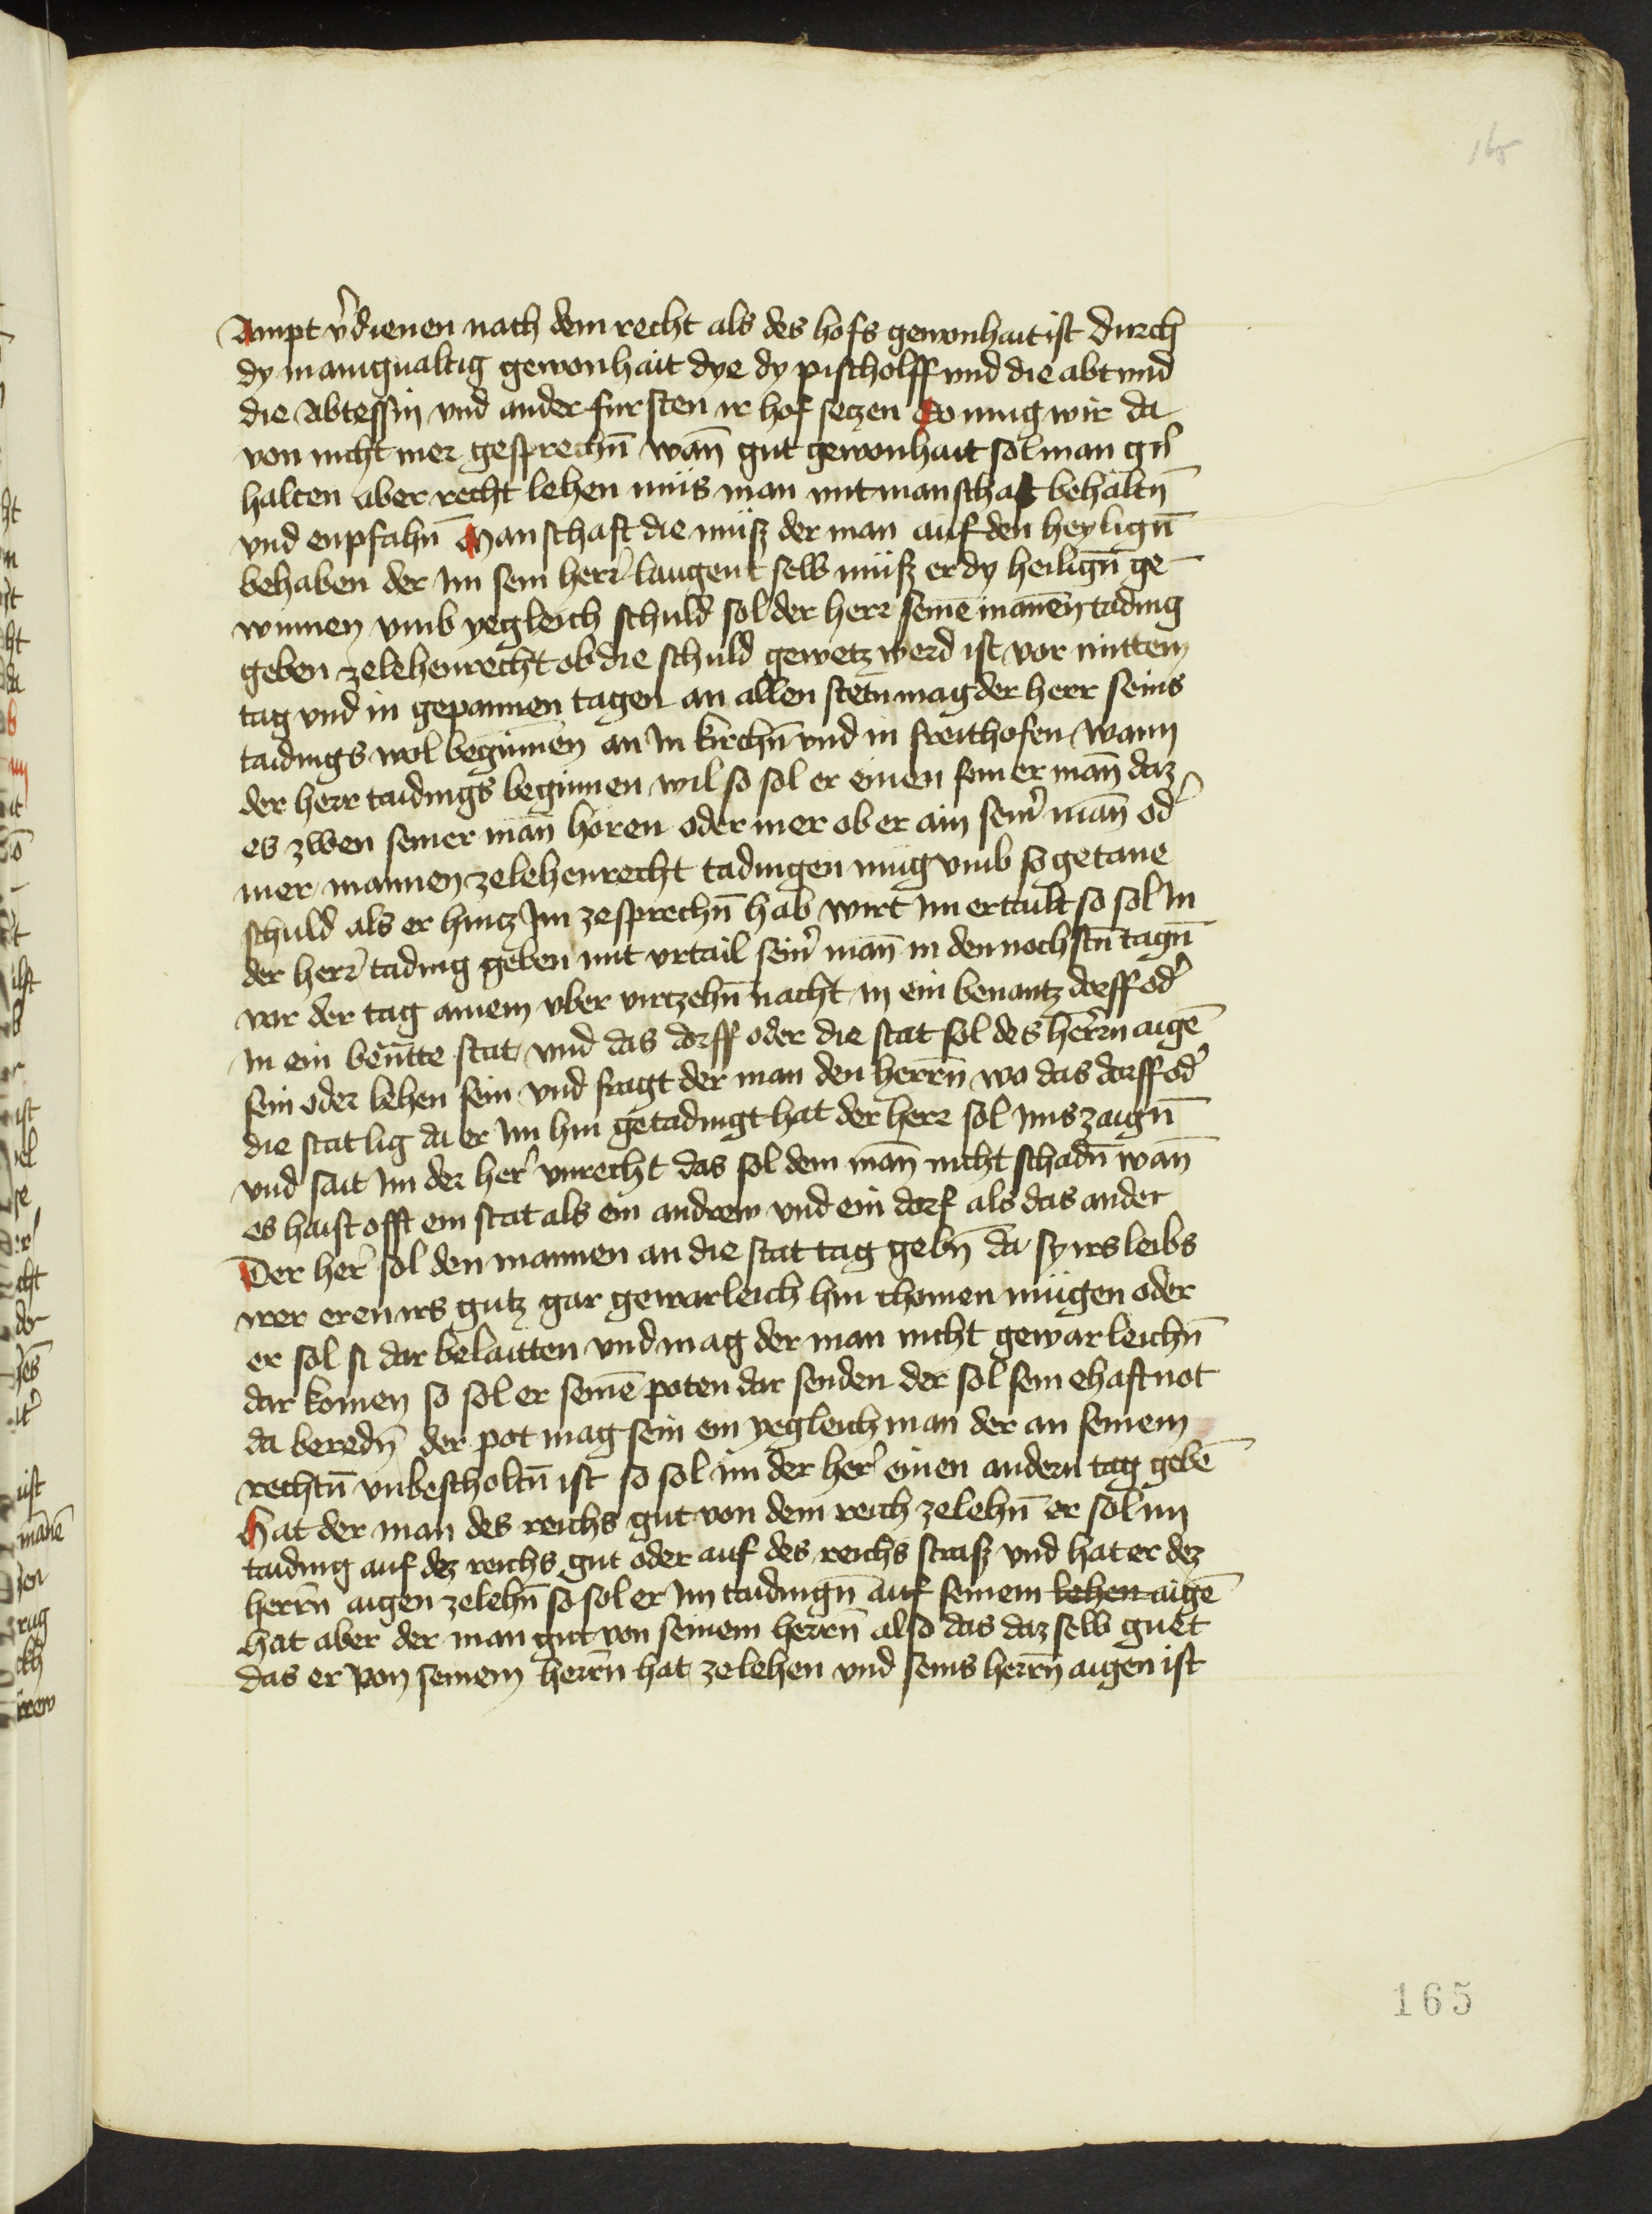 165
Ampt v̉dienen nach dem recht als des hofs gewonhait ist durch
dy manigualtig gewonhait dye dy pischolff und die abt und
die Abtessin vnd ander fursten ir hof setzen So mug wir da
von nicht mer gesprechn̄ wan̄ gut gewonhait sol man gu
halten aber recht lehen müs man mit manschaft behaltn̄
vnd enpfahn̄ Manschaft die müß der man auf den heylign̄
behaben der Im sein herr̉ laugent selb müß er dy heilign̄ ge-
winnen vmb yegleich schuld sol der herr seinē mannen tading
geben ze lehenrecht ob die schuld gewetz werd ist vor mittem
tag vnd in gepannen tagen an allen stetn mag der herr seins
taidings wol beginnen an In kirchn̄ vnd in freithofen Wann
der herr taidings beginnen wil so sol er einen seiner man̄ daz
es zwen seiner man̄ horen oder mer ob er ain sein̉ man̄ od̉
mer mannen ze lehenrecht tadingen müg vmb so getane
schuld als er hintz Im ze sprechn̄ hab wirt im ertailt so sol In
der herr̉ tading geben mit vrtail sein̉ man̄ in den nochstn̄ tagn̄
vor der tag ainem vber virtzehn̄ nacht In ein benantz dorff od̉
In ein benn̄tte stat vnd das dorff oder die stat sol des herrn̄ aigē
sein oder lehen sein vnd fragt der man den herrn̄ wo das dorff od̉
die stat lig da er im hin getadingt hat der herr sol Ims zaign̄
vnd sait Im der her̉ vnrecht das sol dem man̄ nicht schadn̄ wan̄
es haist offt ein stat als ein andrew vnd ein dorf als das ander
Der her̉ sol den mannen an die stat tag gebn̄ da sy irs leibs
irer eren irs gutz gar gewarleich hin chomen mügen oder
er sol si dar belaitten vnd mag der man nicht gewarleichn̄
dar komen so sol er seinē poten dar senden der sol sein ehaft not
da beredn̄ der pot mag sein ein yegleich man der an seinem
rechtn̄ vnbescholtn̄ ist so sol im der her̉ einen andern tag gebē
Hat der man des reichs gut von dem reich ze lehn̄ er sol im
taiding auf dez reichs gut oder auf des reichs straß vnd hat er dez
herrn̄ aigen ze lehn̄ so sol er Im taidingn̄ auf seinem lehen aigē
hat aber der man gut von seinem herrn̄ also das daz selb guet
das er von seinem herrn̄ hat ze lehen vnd seins herrn̄ aigen ist
165